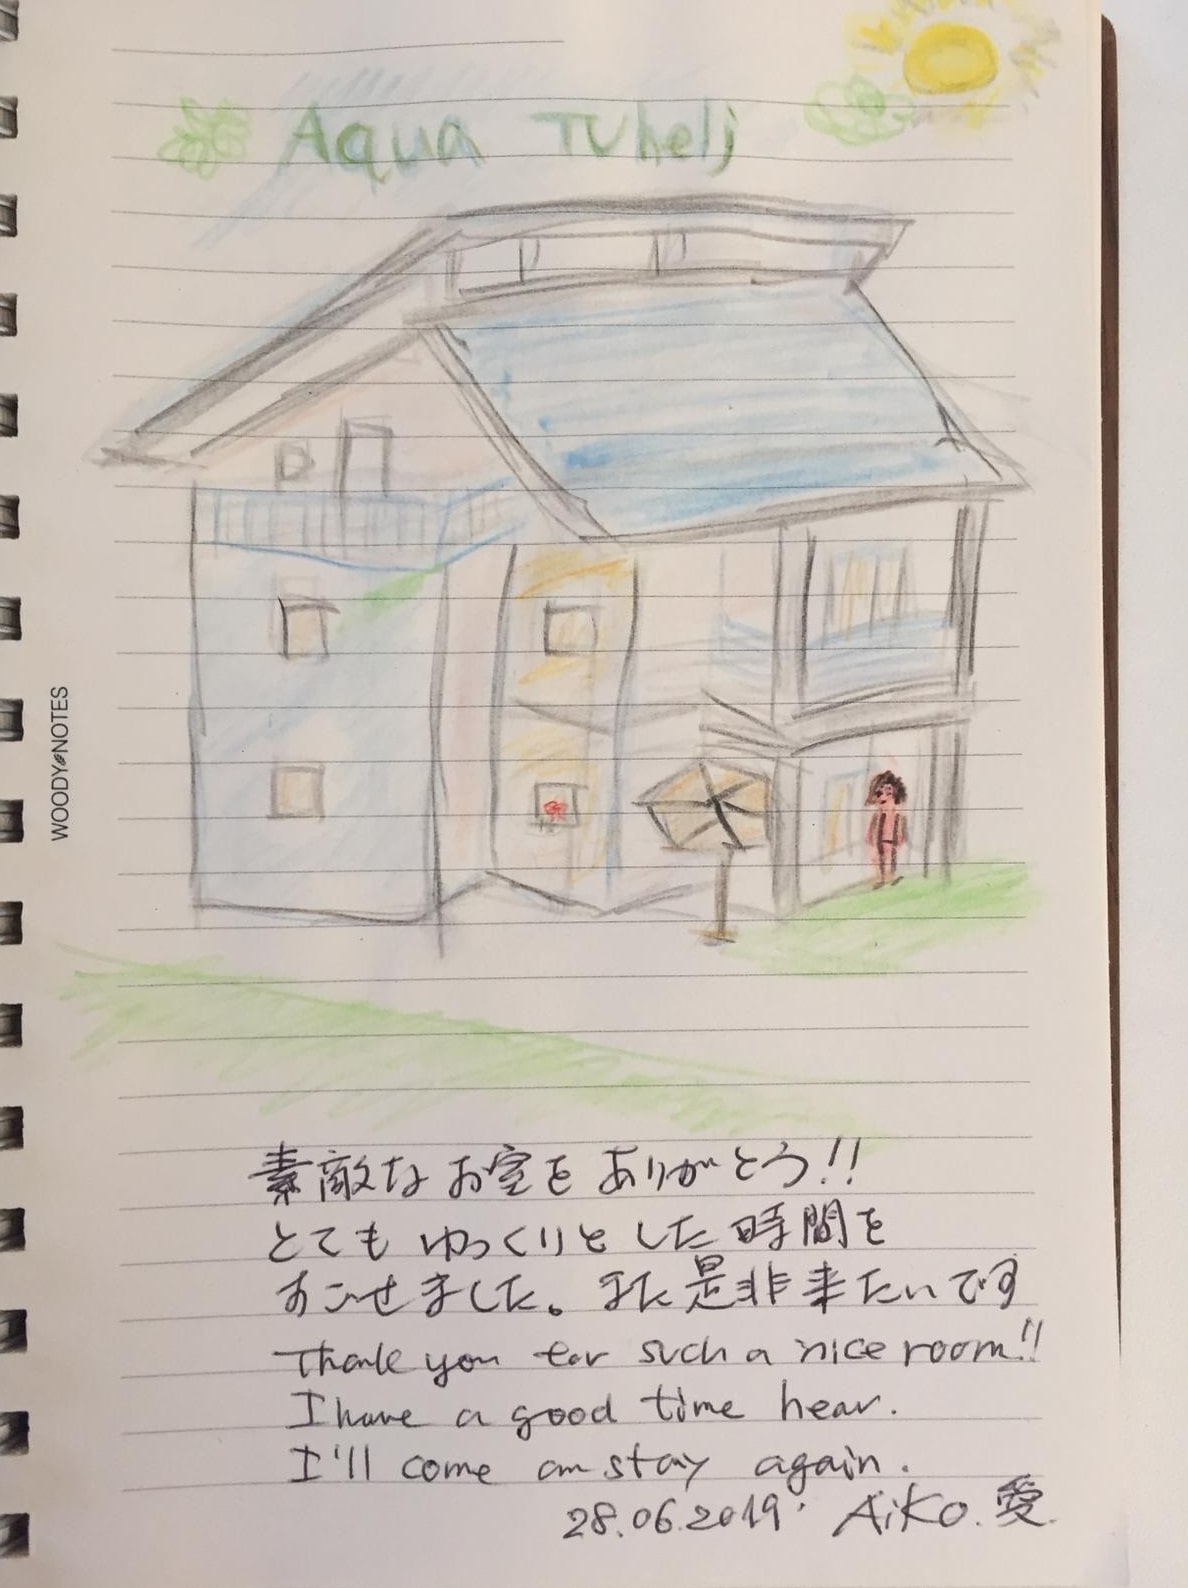 Aqua Tuhelj
WOODY NOTES
素敵なお室をありがとう!!
とてもゆっくりとした時間を
すごせました。また是非来たいです
Thank you for such a nice room!!
I have a good time hear.
I'll come an stay again.
28.06.2019. AiKO. 愛